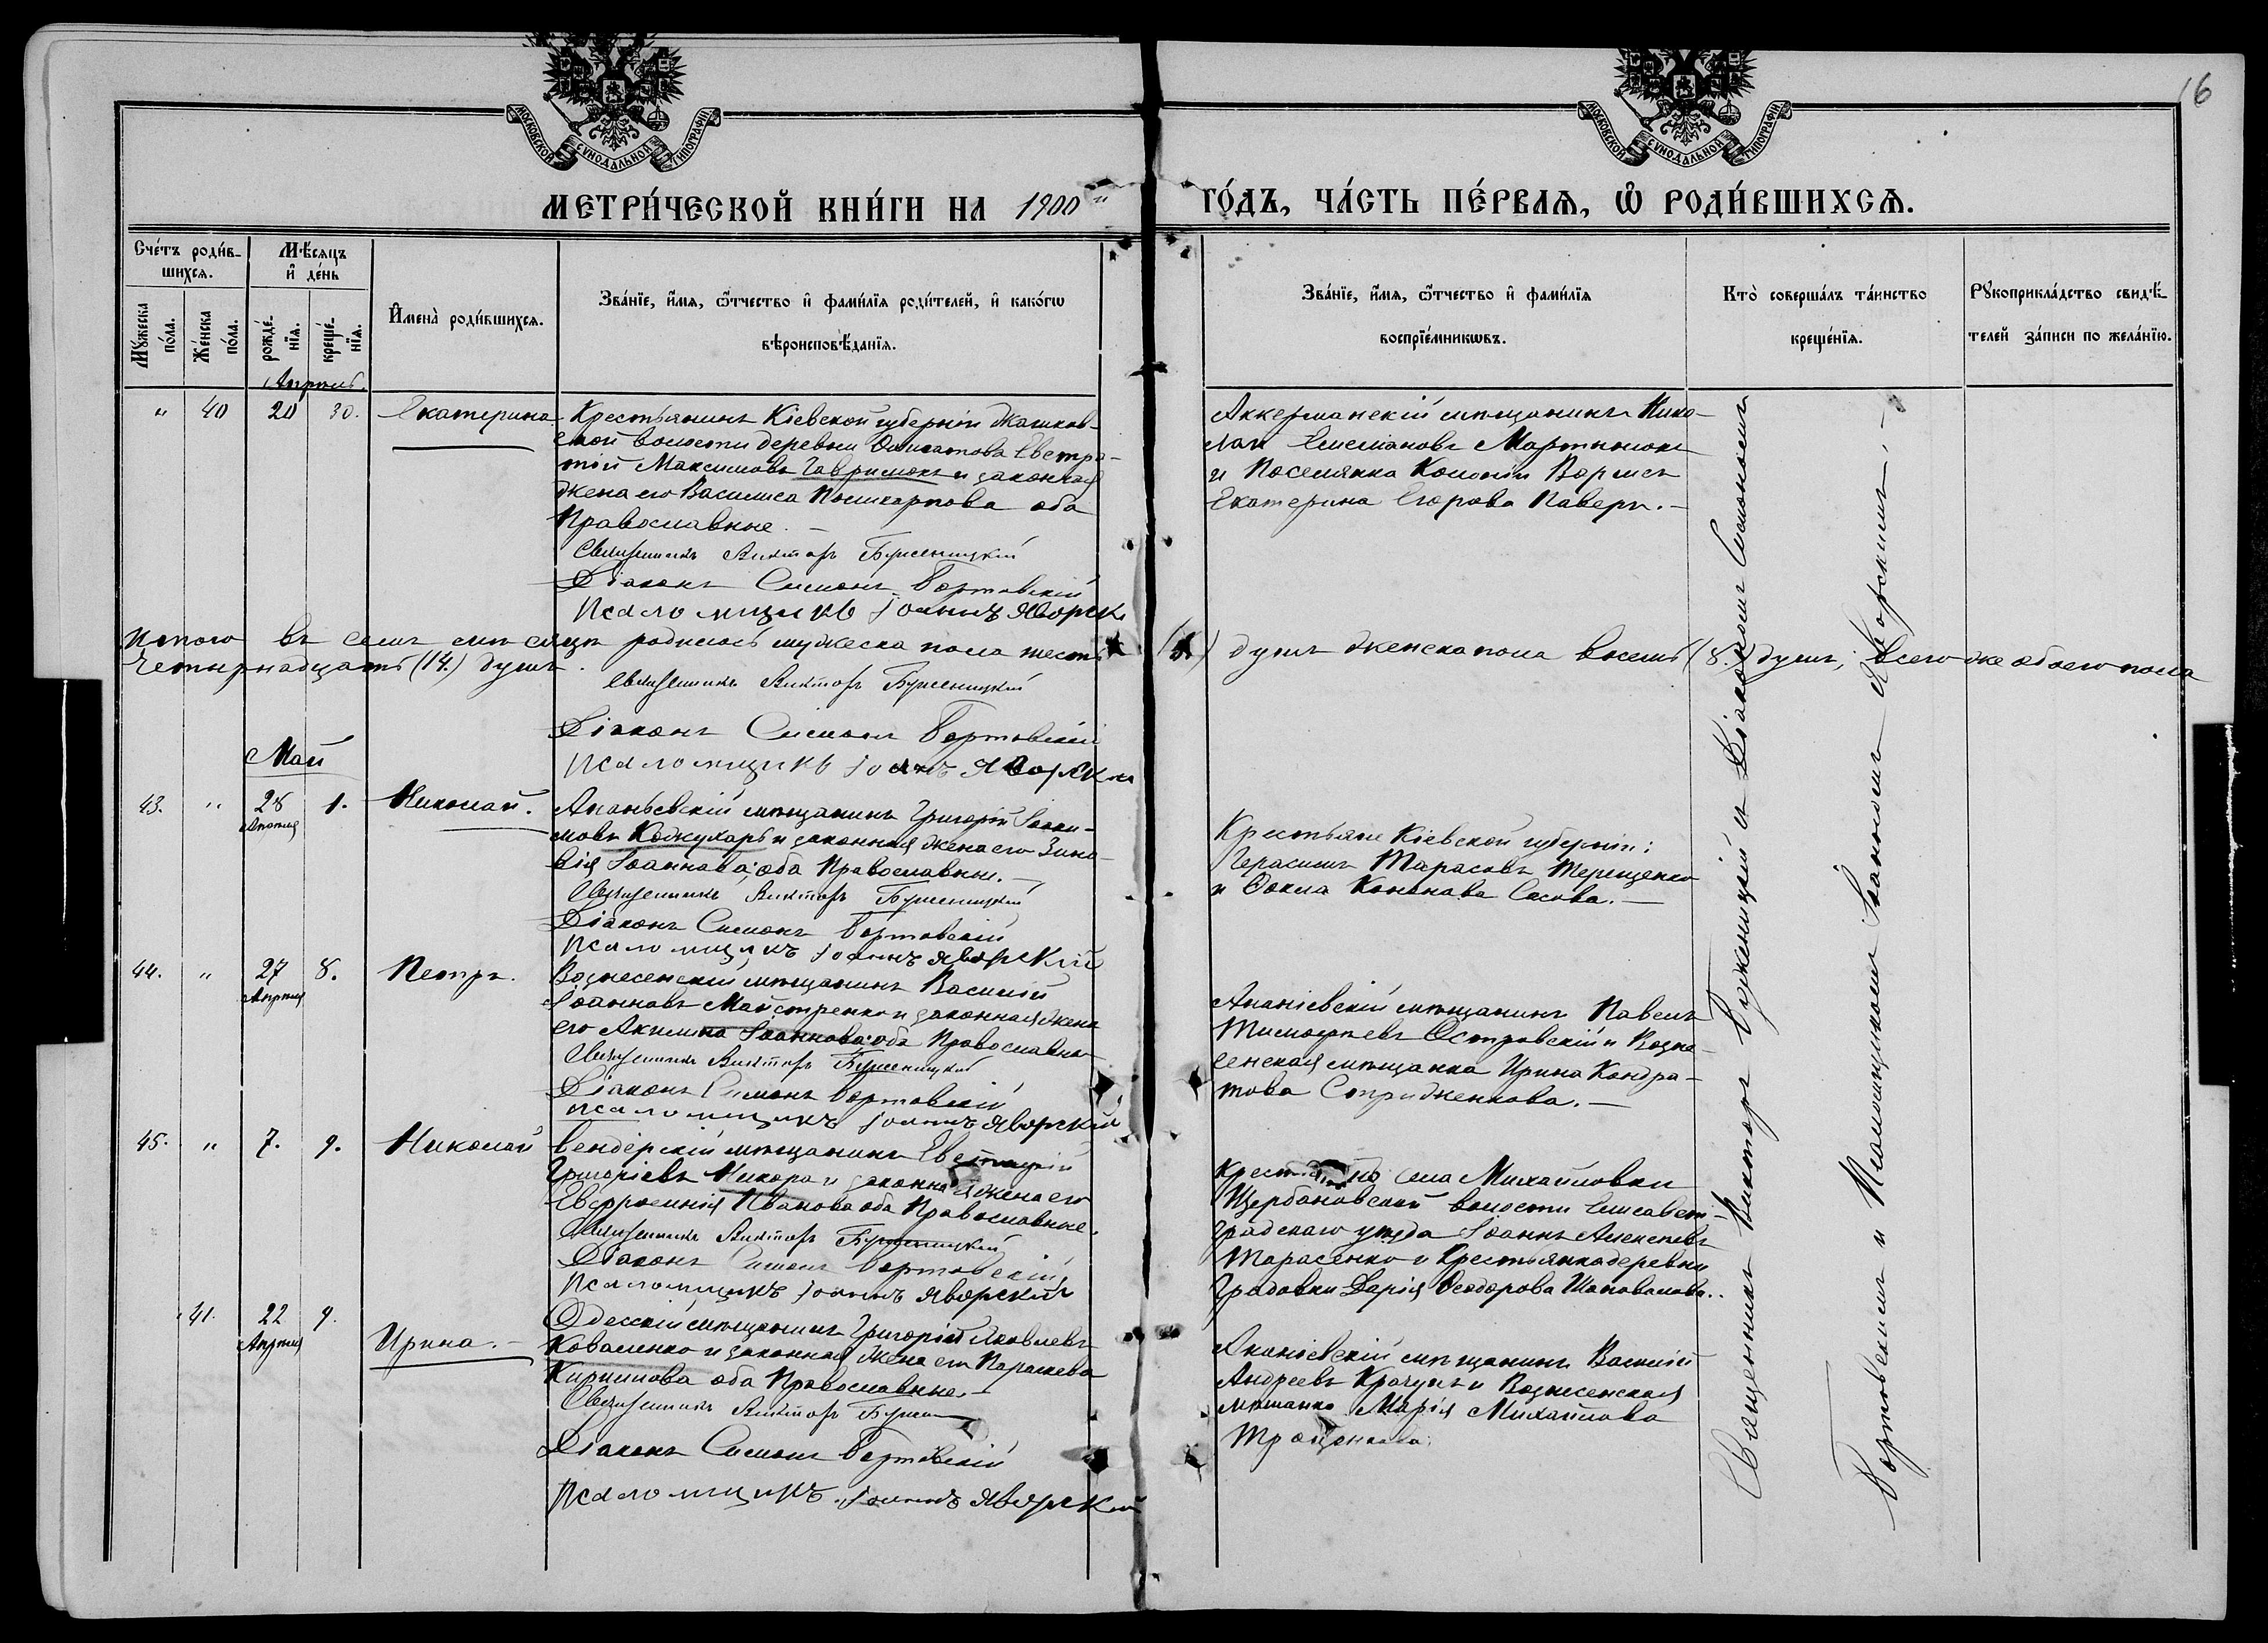 16
МОСКОВСКОЙ СѴНОДАЛЬНОЙ ТИПОГРАФІИ
МОСКОВСКОЙ СѴНОДАЛЬНОЙ ТИПОГРАФІИ
МЕТРИ́ЧЕСКОЙ КНИ́ГИ НА 1900 й ГО́ДЪ, ЧА́СТЬ ПЕ́РВАѦ, Ѽ РОДИ́ВШИХСѦ.
Сче́тъ роди́в-
шихсѧ.
Мꙋ́жеска по́ла.
Же́нска по́ла.
Мѣ́сяцъ
и҆ де́нь
рожде́-
нїѧ.
креще́-
нїѧ.
И҆мена̀ роди́вшихсѧ.
Зва́нїе, и҆́мѧ, ѻ҆́тчество и҆ фами́лїѧ роди́телей, и҆ како́гѡ
вѣроисповѣ́данїѧ.
Зва́нїе, и҆́мѧ, ѻ҆́тчество и҆ фами́лїѧ
воспрїе́мникѡвъ.
Кто̀ соверша́лъ та́инство
креще́нїѧ.
Рꙋкоприкла́дство свидѣ́-
телей за́писи по жела́нїю.
Апрѣль.
" 40 20 30. Екатерина
Крестьянинъ Кіевской губерніи Жашков-
ской волости деревни Евстра-
тій Максимовъ Гаврилюкъ и законная
жена его Василиса Поликарпова оба
Православные. —
Священникъ Викторъ Буженицкій
Діаконъ Симонъ Бортовскій
Псаломщикъ Іоаннъ Яворск
Аккерманскій мѣщанинъ Нико-
лай Емельяновъ Мартынюкъ
и Поселянка Колоніи Вормсъ
Екатерина Егорова Паверъ. —
Итого въ семъ мѣсяцѣ родилось мужеска пола шесть (6.) душъ женска пола восемь (8.) душъ; всего же обоего пола
Четырнадцать (14.) душъ.
Священникъ Викторъ Буженицкій
Діаконъ Симонъ Бортовскій
Псаломщикъ Іоаннъ Яворски
Май
43. " 28 Апрѣля 1. Николай.
Ананьевскій мѣщанинъ Григорій Іоаки-
мовъ Кожухарь и законная жена его Зино-
вія Іоаннова; оба Православные. —
Священникъ Викторъ Буженицкій
Діаконъ Симонъ Бортовскій
Псаломщикъ Іоаннъ Яворскій
Крестьяне Кіевской губерніи:
Герасимъ Тарасовъ Терещенко
и Ѳекла Кононова Сасова. —
44. " 27 Апрѣля 8. Петръ.
Вознесенскій мѣщанинъ Василій
Іоанновъ Майстренко и законная жена
его Акилина Іоаннова оба Православные
Священникъ Викторъ Буженицкій
Діаконъ Симонъ Бортовскій
Псаломщикъ Іоаннъ Яворскій
Ананіевскій мѣщанинъ Павелъ
Тимофеевъ Островскій и Возне-
сенская мѣщанка Ирина Кондра-
това Стриженкова. —
45. " 7. 9. Николай
Бендерскій мѣщанинъ
Григоріевъ Никора и законная жена его
Евфросинія Иванова оба Православные.
Священникъ Викторъ Буженицкій
Діаконъ Симонъ Бортовскій
Псаломщикъ Іоаннъ Яворскій
села Михайловки
Щербановской волости Елисавет-
градскаго уѣзда Іоаннъ Алексѣевъ
Тарасенко и Крестьянка деревни
Градовки Дарія Ѳеодорова Шаповалова.
" 41. 22 Апрѣля 9. Ирина. —
Одесскій мѣщанинъ Григорій Яковлевъ
Коваленко и законная жена его Параскева
Кириллова оба Православные. —
Священникъ Викторъ
Діаконъ Симонъ Бортовскій
Псаломщикъ Іоаннъ Яворскій
Ананіевскій мѣщанинъ Василій
Андреевъ Крачунъ и Вознесенская
мѣщанка Марія Михайлова
Троценкова.
Священникъ Викторъ Буженицкій и Діакономъ Симономъ
Бортовскимъ и Псаломщикомъ Іоанномъ Яворскимъ. —